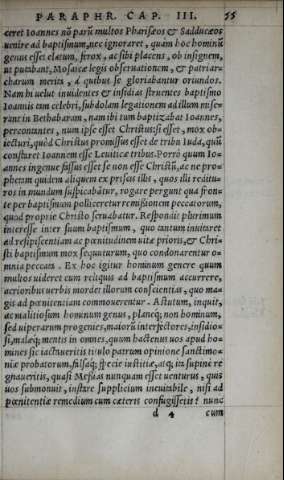 PARAPHR. CAP. III. 55
ceret Ioannes nõ parũ multos Pharisæos & Sadducæos
uenire ad baptismum, nec ignoraret, quàm hoc hominũ
genus esset elatum, ferox, ac sibi placens, ob insignem,
ut putabant, Mosaicæ legis obseruationem, & patriar-
charum merita, à quibus se gloriabantur oriundos.
Nam hi uelut inuidentes & insidias struentes baptismo
Ioannis tam celebri, subdolam legationem ad illum mise-
rant in Bethabaram, nam ibi tum baptizabat Ioannes,
percontantes, num ipse esset Christus: si esset, mox ob-
iecturi, quòd Christus promissus esset de tribu Iuda, quũ
constaret Ioannem esse Leuiticæ tribus. Porrò quum Io-
annes ingenue fassus esset se non esse Christũ, ac ne pro-
phetam quidem aliquem ex priscis illis, quos illi reditu-
ros in mundum suspicabãtur, rogare pergunt qua fron-
te per baptismum polliceretur remissionem peccatorum,
quod propriè Christo seruabatur. Respondit plurimum
interesse inter suum baptismum, quo tantum inuitaret
ad resipiscentiam ac pœnitudinem uitæ prioris, & Chri-
sti baptismum mox sequuturum, quo condonarentur o-
mnia peccata. Ex hoc igitur hominum genere quum
multos uideret cum reliquis ad baptismum accurrere,
acrioribus uerbis mordet illorum conscientias, quo ma-
gis ad pœnitentiam commouerentur. Astutum, inquit,
ac malitiosum hominum genus, planeq; non hominum,
sed uiperarum progenies, maiorũ interfectores, insidio-
si, malæq; mentis in omnes, quum hactenus uos apud ho-
mines sic iactaueritis titulo patrum opinione sanctimo-
niæ probatorum, falsaq; specie iustitiæ, atq; ita supinè re
gnaueritis, quasi Messias nunquam esset uenturus, quis
uos submonuit, instare supplicium ineuitabile, nisi ad
pœnitentiæ remedium cum cæteris confugissetis? nunc
d 4 cum